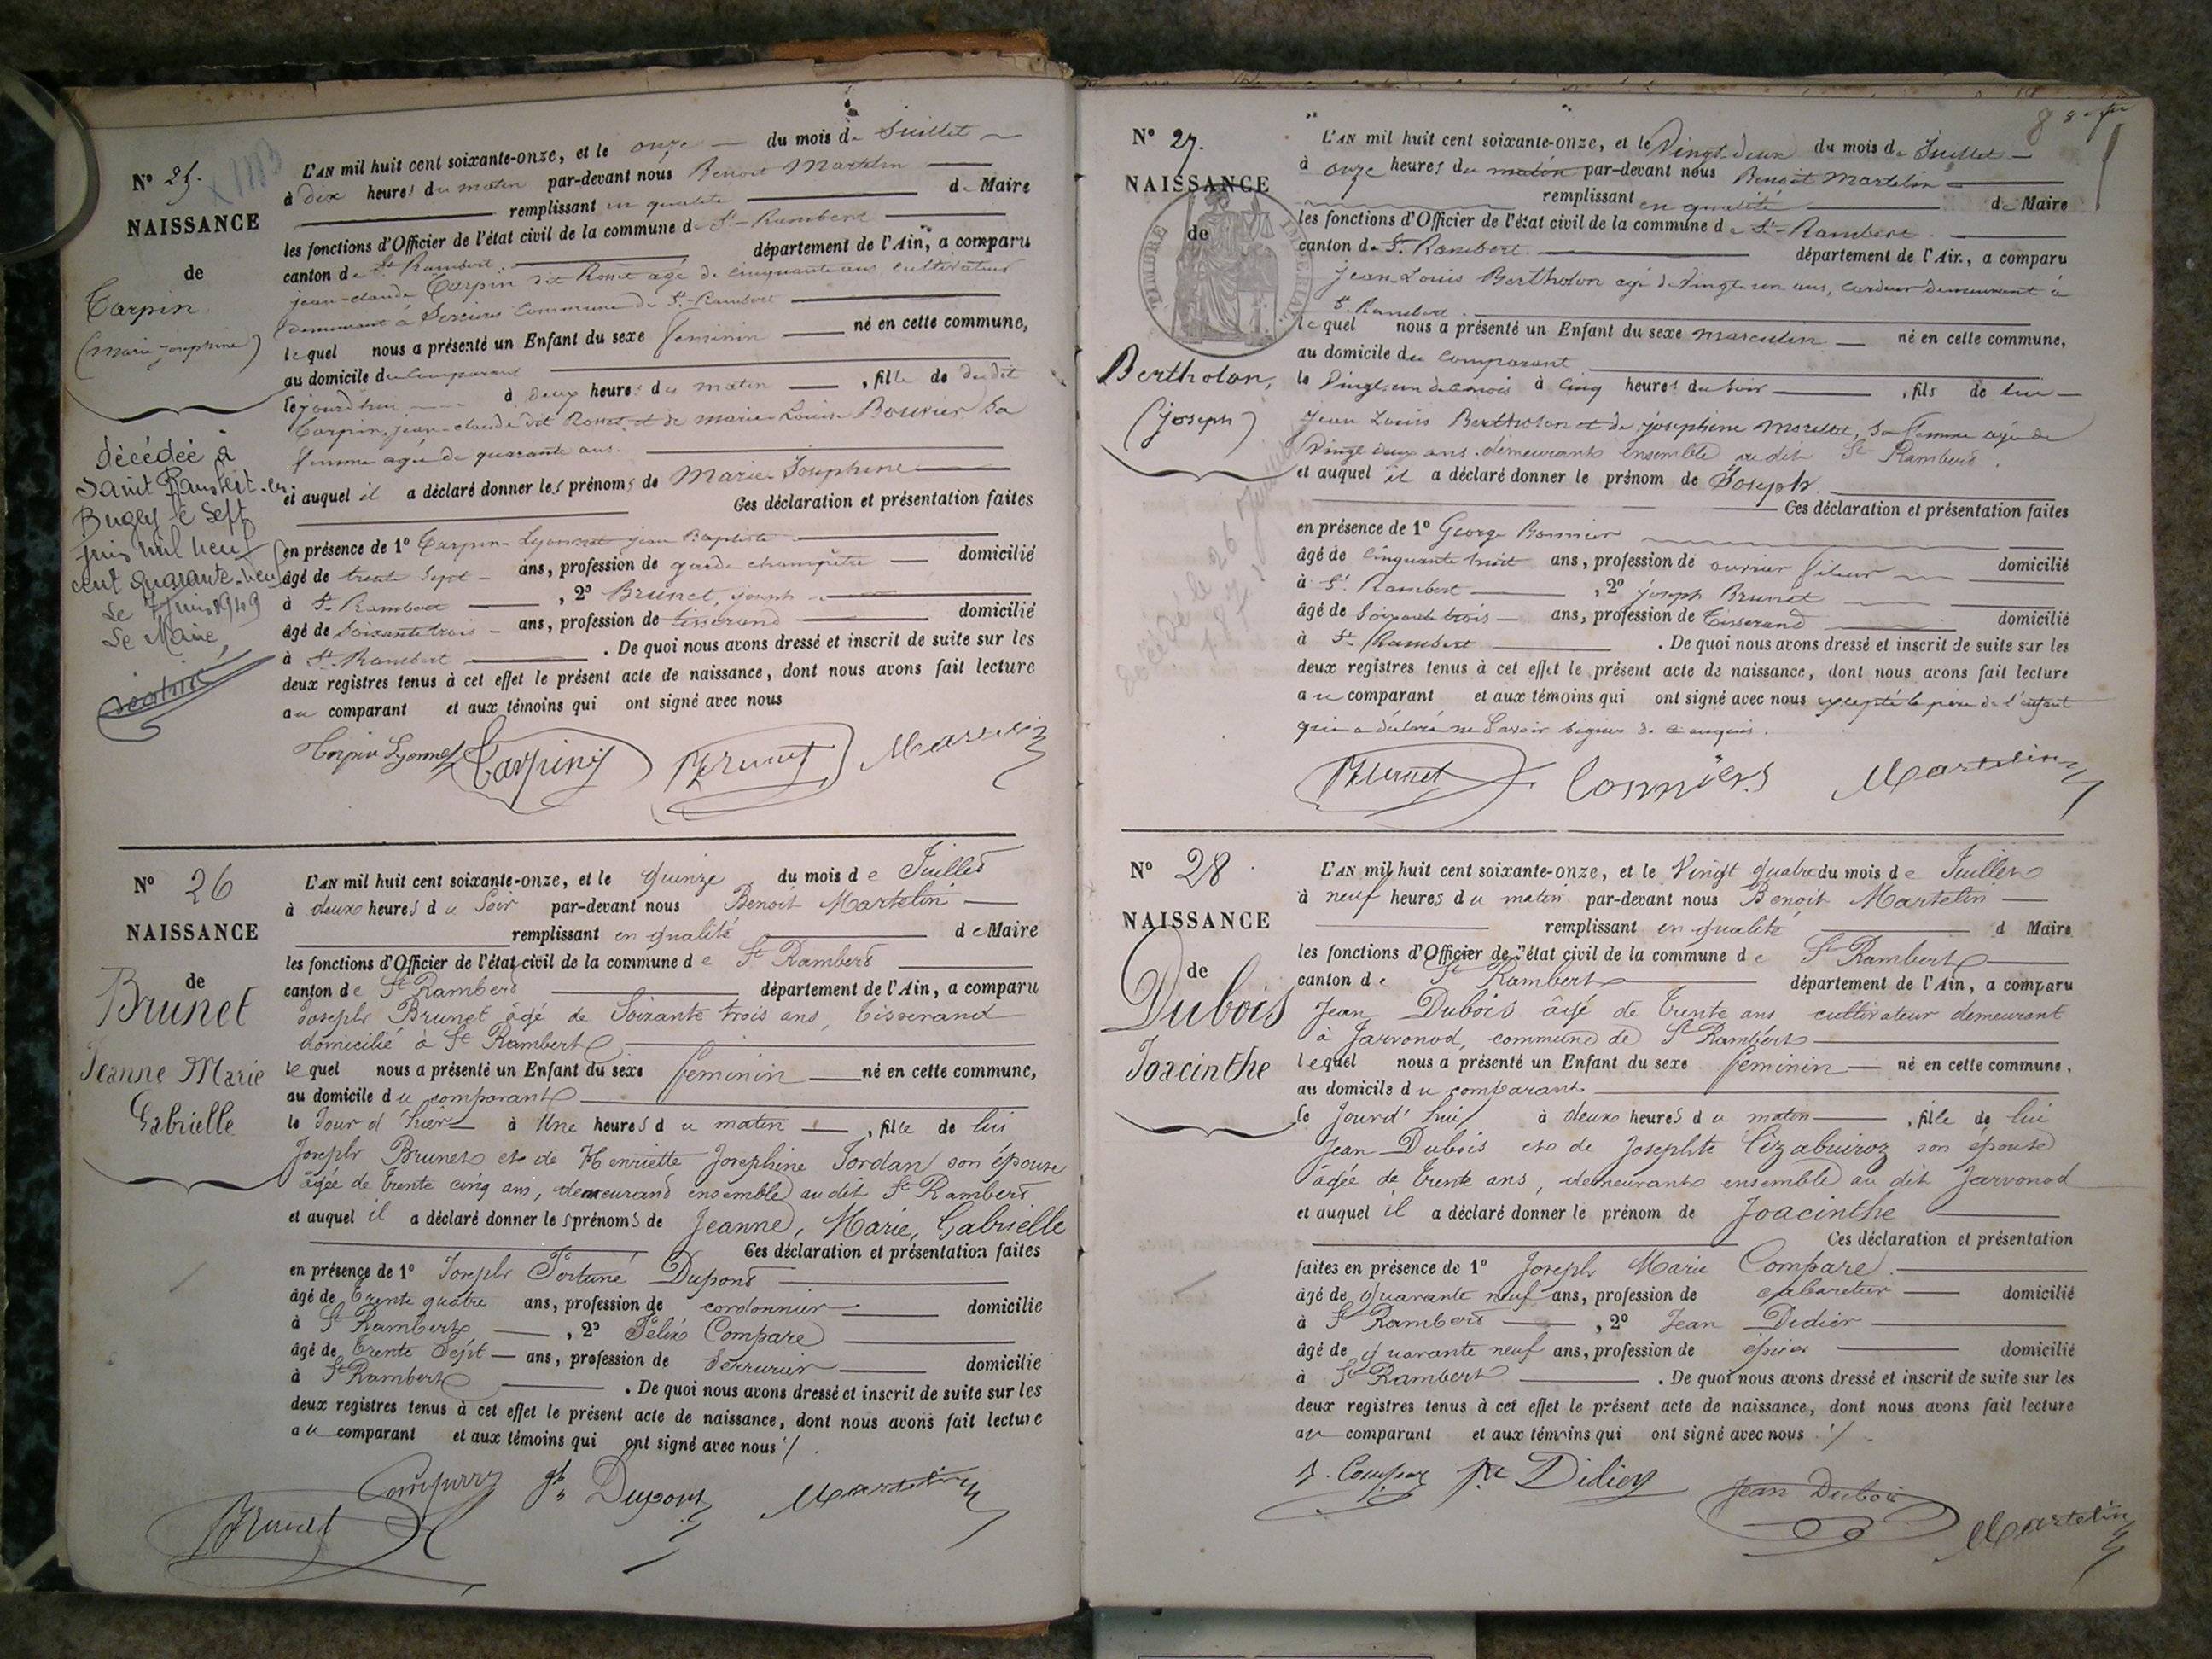 N° 25.
NAISSANCE
de
Carpin
(marie josephine)
décédée à
Saint Rambert-en-
Bugey le sept
juin mil neuf
cent quarante-neuf
Le 7 juin 1949
Le Maire,
L'AN mil huit cent soixante-onze, et le onze du mois de Juillet
à dix heures du matin par-devant nous Benoit Martelin
remplissant en qualité de Maire
les fonctions d'Officier de l'état civil de la commune de St-Rambert
canton de St Rambert. département de l'Ain, a comparu
jean-claude Carpin dit Rosset agé de cinquante ans, cultivateur
demeurant à Serrières Commune de St-Rambert
lequel nous a présenté un Enfant du sexe feminin né en cette commune,
au domicile du comparant
le jourd'hui à deux heures du matin, fille de du dit
Carpin, jean-claude dit Rosset et de marie Louise Bouvier Sa
femme agée de quarante ans.
et auquel il a déclaré donner les prénoms de Marie Josephine
Ces déclaration et présentation faites
en présence de 1° Carpin-Lyonnet jean Baptiste
âgé de trente sept ans, profession de garde champêtre domicilié
à St. Rambert, 2° Brunet, joseph
âgé de Soixante trois ans, profession de tisserand domicilié
à St. Rambert. De quoi nous avons dressé et inscrit de suite sur les
deux registres tenus à cet effet le présent acte de naissance, dont nous avons fait lecture
au comparant et aux témoins qui ont signé avec nous
Carpin Lyonnet Carpin Brunet Martelin
N° 26
NAISSANCE
de
Brunet
Jeanne Marie
Gabrielle
L'AN mil huit cent soixante-onze, et le quinze du mois de Juillet
à deux heures du Soir par-devant nous Benoit Martelin
remplissant en qualité de Maire
les fonctions d'Officier de l'état civil de la commune de St Rambert
canton de St Rambert département de l'Ain, a comparu
Joseph Brunet âgé de Soixante trois ans, Tisserand
domicilié à St Rambert
lequel nous a présenté un Enfant du sexe feminin né en cette commune,
au domicile du comparant
le Jour d'hier à Une heures du matin, fille de lui
Joseph Brunet et de Henriette Josephine Jordan son épouse
âgée de trente cinq ans, demeurant ensemble au dit St Rambert
et auquel il a déclaré donner les prénoms de Jeanne, Marie, Gabrielle
Ces déclaration et présentation faites
en présence de 1° Joseph Fortuné Dupont
âgé de Trente quatre ans, profession de cordonnier domicilié
à St Rambert, 2° Félix Compare
âgé de Trente Sept ans, profession de Serrurier domicilié
à St Rambert. De quoi nous avons dressé et inscrit de suite sur les
deux registres tenus à cet effet le présent acte de naissance, dont nous avons fait lecture
au comparant et aux témoins qui ont signé avec nous
Brunet Dupont Martelin
N° 27.
NAISSANCE
de
TIMBRE IMPERIAL
Bertholon,
(joseph)
Décédé le 26
L'AN mil huit cent soixante-onze, et le Vingt-deux du mois de Juillet
à onze heures du matin par-devant nous Benoit Martelin
remplissant en qualité de Maire
les fonctions d'Officier de l'état civil de la commune de St-Rambert
canton de St. Rambert. département de l'Ain, a comparu
jean-Louis Bertholon agé de Vingt un ans, cardeur demeurant à
St. Rambert.
lequel nous a présenté un Enfant du sexe masculin né en cette commune,
au domicile du comparant
le Vingt-un de ce mois à cinq heures du Soir, fils de lui
jean Louis Bertholon et de josephine Morellet, Sa femme agée de
Vingt deux ans. demeurants ensemble au dit St Rambert.
et auquel il a déclaré donner le prénom de Joseph.
Ces déclaration et présentation faites
en présence de 1° George Bonnier
âgé de Cinquante huit ans, profession de ouvrier fileur domicilié
à St Rambert, 2° joseph Brunet
âgé de Soixante trois ans, profession de Tisserand domicilié
à St Rambert. De quoi nous avons dressé et inscrit de suite sur les
deux registres tenus à cet effet le présent acte de naissance, dont nous avons fait lecture
au comparant et aux témoins qui ont signé avec nous excepté le père de l'enfant
qui a déclaré ne Savoir Signer de ce enquis.
Brunet Martelin
N° 28
NAISSANCE
de
Dubois
Joacinthe
L'AN mil huit cent soixante-onze, et le Vingt quatre du mois de Juillet
à neuf heures du matin par-devant nous Benoit Martelin
remplissant en qualité d Maire
les fonctions d'Officier de l'état civil de la commune de St Rambert
canton de St Rambert département de l'Ain, a comparu
Jean Dubois âgé de trente ans cultivateur demeurant
à Jarvonod, commune de St Rambert
lequel nous a présenté un Enfant du sexe feminin né en cette commune,
au domicile du comparant
le Jourd'hui à deux heures du matin, fille de lui
Jean Dubois et de Josephte Cizabuiroz son épouse
âgée de trente ans, demeurants ensemble au dit Jarvonod
et auquel il a déclaré donner le prénom de Joacinthe
Ces déclaration et présentation
faites en présence de 1° Joseph Marie Compare
âgé de Quarante neuf ans, profession de cabaretier domicilié
à St Rambert, 2° Jean Didier
âgé de quarante neuf ans, profession de épicier domicilié
à St Rambert. De quoi nous avons dressé et inscrit de suite sur les
deux registres tenus à cet effet le présent acte de naissance, dont nous avons fait lecture
au comparant et aux témoins qui ont signé avec nous
Didier Jean Dubois Martelin